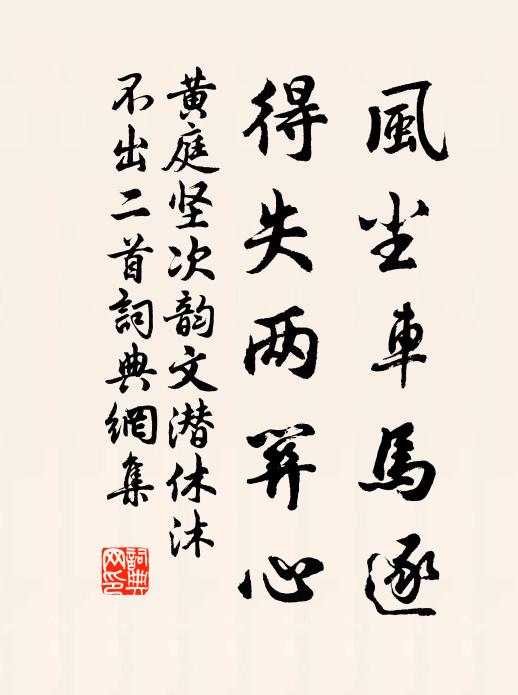 風尘車馬逐
得失两关心
黄庭坚次韵文潜休沐
不出二首詞典網集
詞典
网印